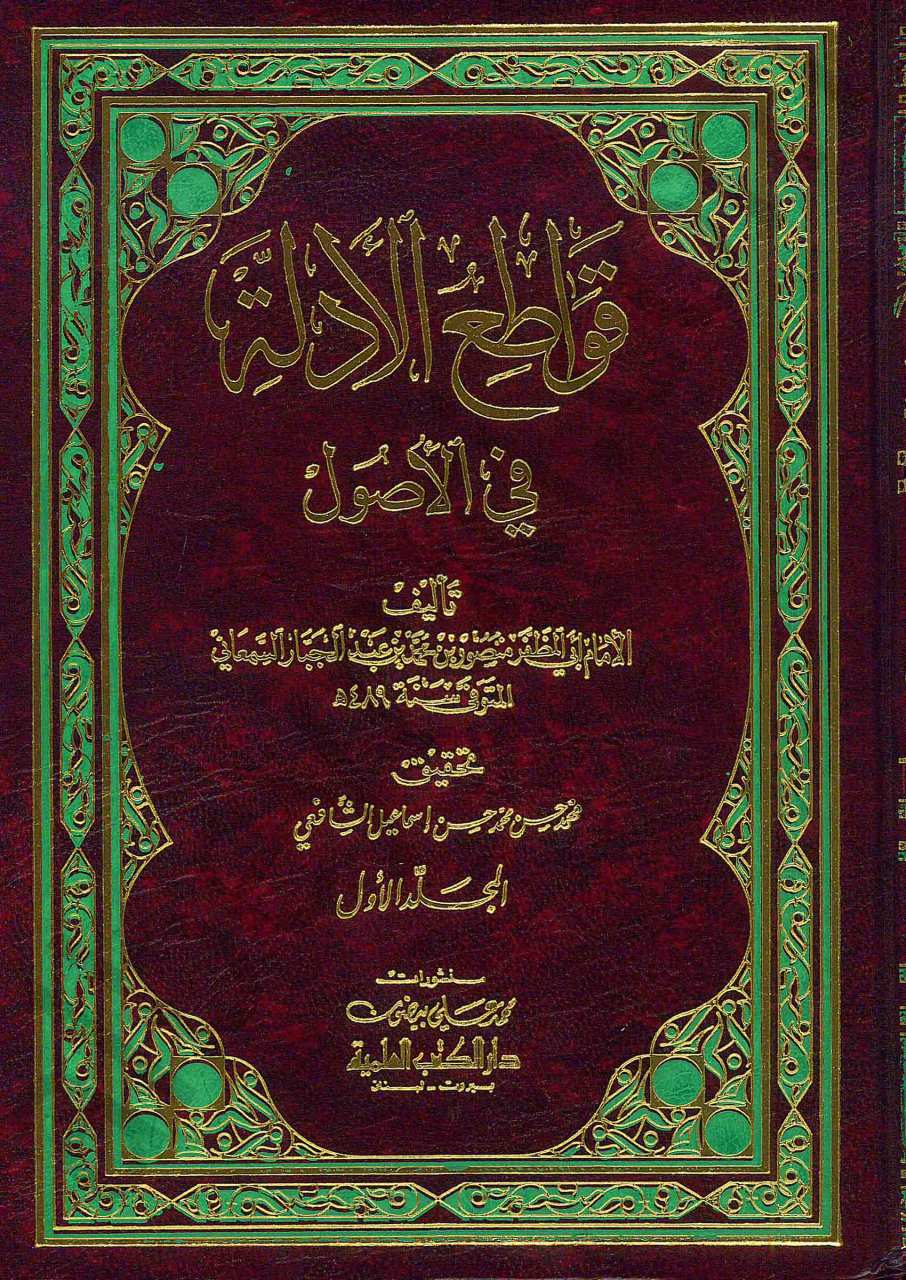 قَوَاطِعُ الأَدِلَّةِ
في الأُصُول
تَأليف
الإمَام أبي المظفّر منصُور بن محمّد بن عَبد الجَبّار السّمعَاني
المتوفى سَنَة ٤٨٩ھ
تحقيق
محمد حسن محمد حسن إسماعيل الشافعي
المجَلّد الأول
منشورات
محمد علي بيضون
دار الكتب العلمية
بيروت - لبنان